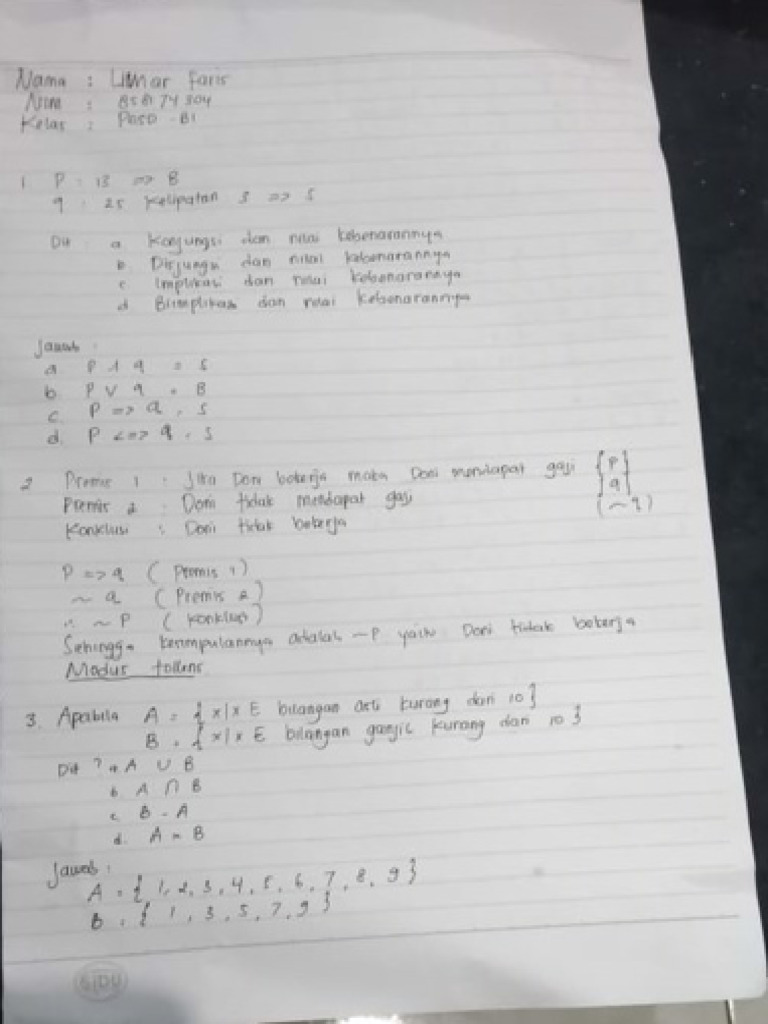 Nama : Umar Faris
Nim : 858174304
Kelas : PGSD - BI
1 P : 13 => B
q : 25 Kelipatan 3 => S
Dit a Konjungsi dan nilai kebenarannya
b Disjungsi dan nilai kebenarannya
c Implikasi dan nilai kebenarannya
d Biimplikasi dan nilai kebenarannya
Jawab :
a P ∧ q = S
b. P ∨ q = B
c. P => q . S
d. P <=> q . S
2 Premis 1 : Jika Doni bekerja maka Doni mendapat gaji {P}
Premis 2 : Doni tidak mendapat gaji {q}
Konklusi : Doni tidak bekerja (~q)
P => q (Premis 1)
~ q (Premis 2)
∴ ~ P (Konklusi)
Sehingga kesimpulannya adalah ~P yaitu Doni tidak bekerja
Modus tollens
3. Apabila A = { x | x E bilangan asli kurang dari 10 }
B = { x | x E bilangan ganjil kurang dari 10 }
Dit ? a A ∪ B
b A ∩ B
c B - A
d. A = B
Jawab :
A = { 1, 2, 3, 4, 5, 6, 7, 8, 9 }
B = { 1, 3, 5, 7, 9 }